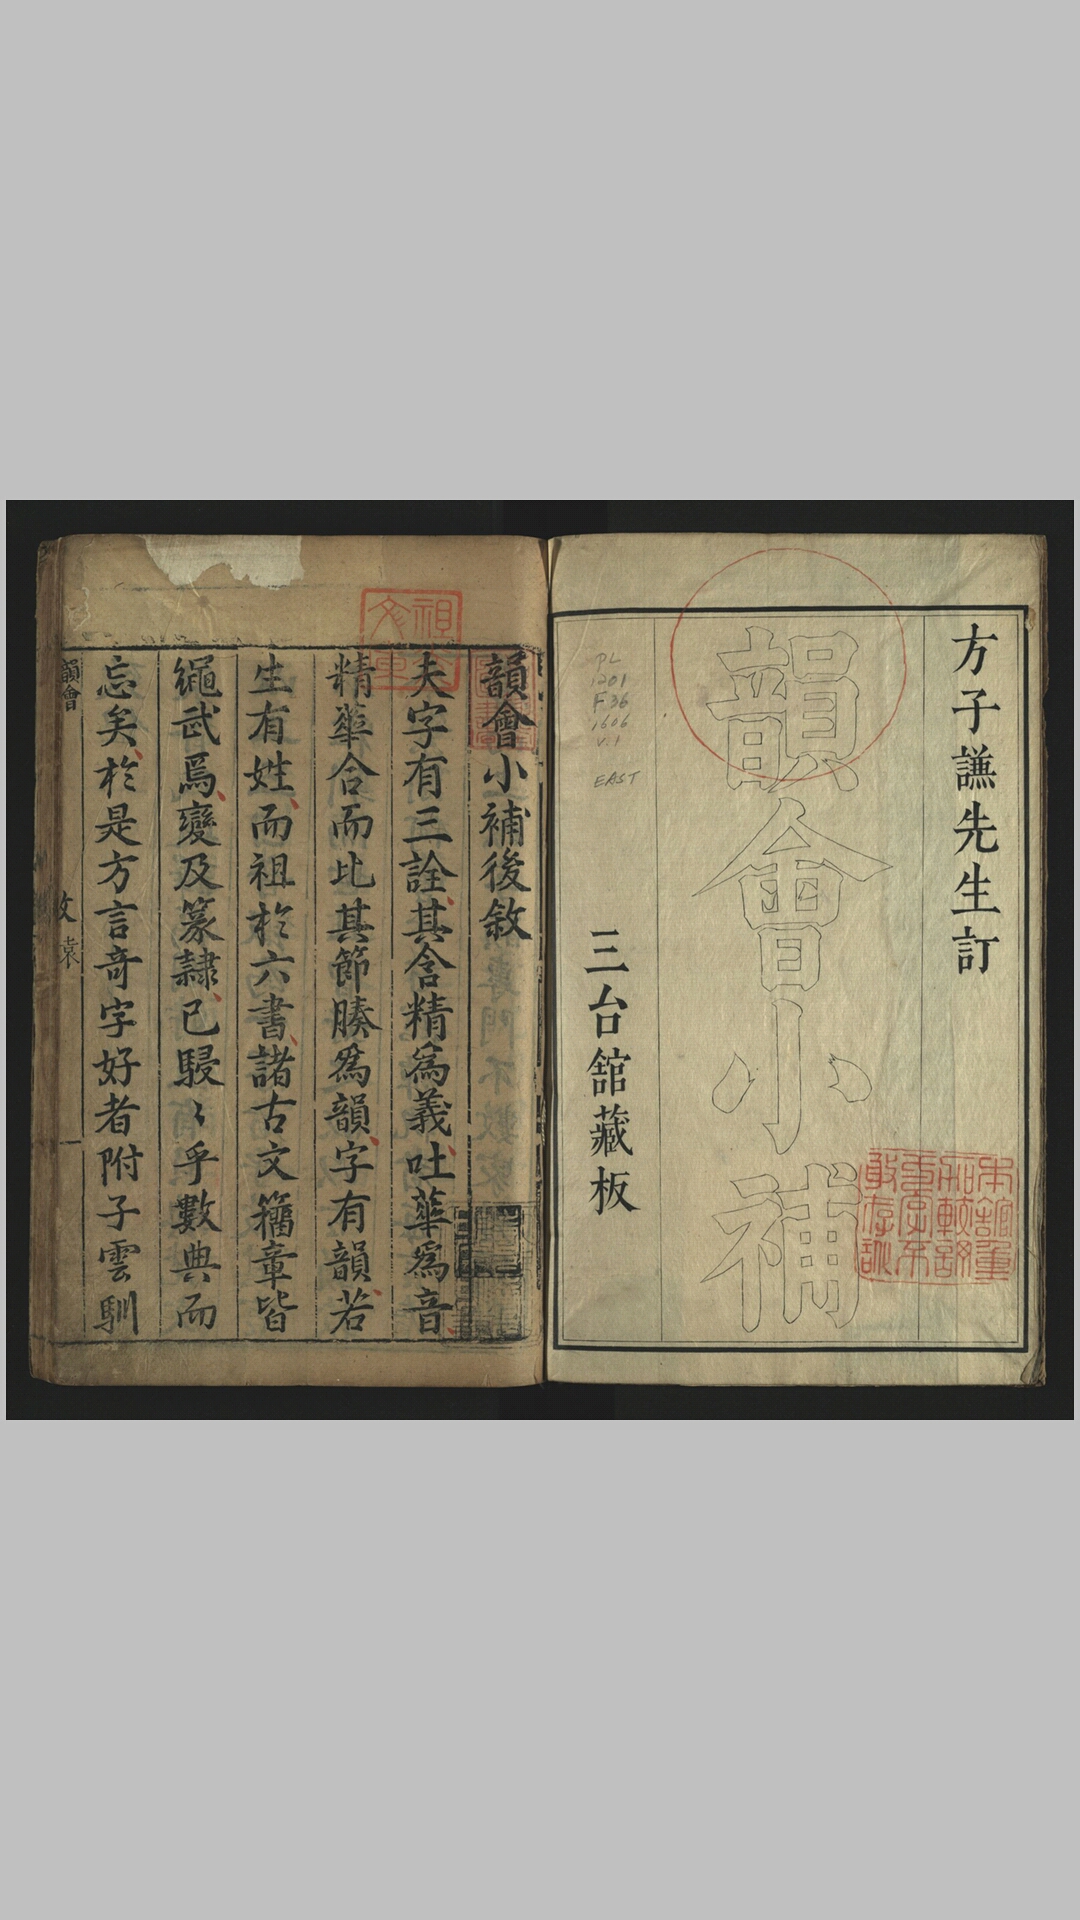 方子謙先生訂
韻會小補
三台舘藏板
PL
1201
F36
1606
v.1
EAST
韻會小補後敘
夫字有三詮其含精為義吐華爲音
精華合而比其節腠爲韻字有韻若
生有姓而祖於六書諸古文籀章皆
繩武焉變及篆隸已駸〻乎數典而
忘矣於是方言奇字好者附子雲馴
韻會
袁
一